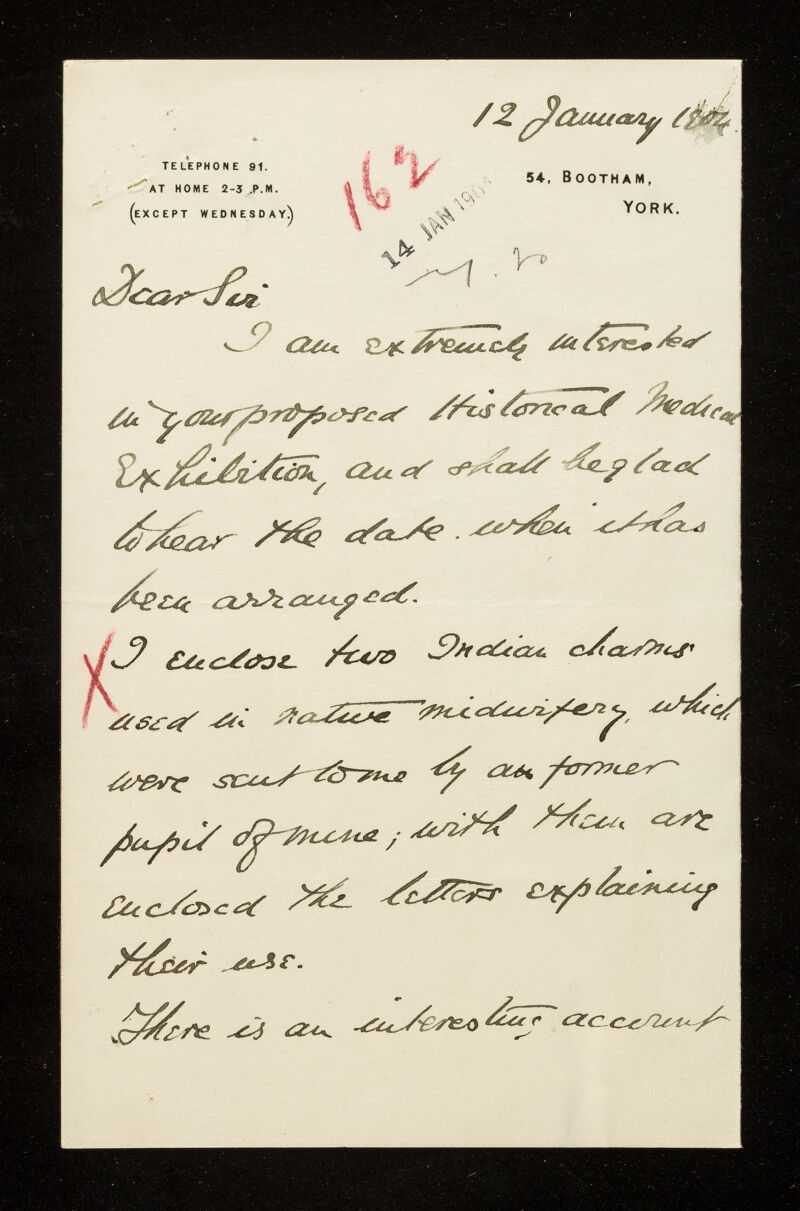 12 January 1904
TELEPHONE 91.
AT HOME 2-3 P.M.
(EXCEPT WEDNESDAY.)
162
14 JAN 190
54, BOOTHAM,
YORK.
Dear Sir
I am extremely interested
in your proposed Historical Medical
Exhibition, and shall be glad
to hear the date when it has
been arranged.
X I enclose two Indian charms
used in native midwifery, which
were sent to me by a former
pupil of mine; with them are
enclosed the letters explaining
their use.
There is an interesting account